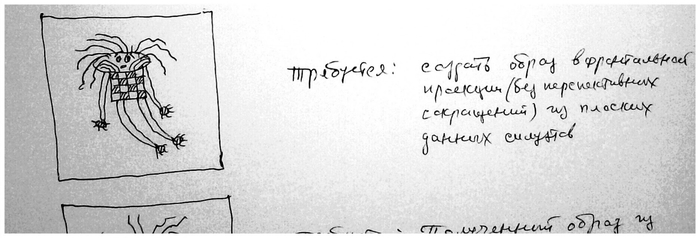 требуется: создать образ в фронтальной
проекции (без перспективных
сокращений) из плоских
данных силуэтов
Полученный образ из